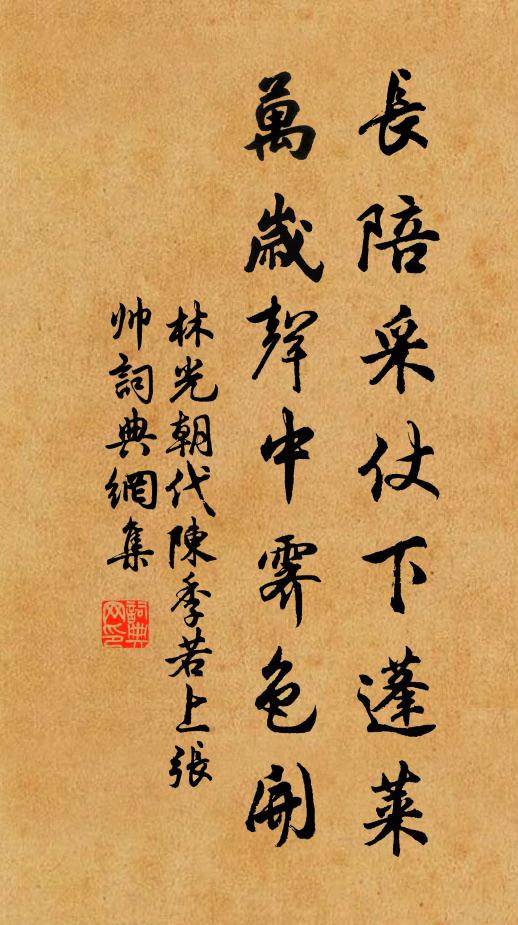 長陪采仗下蓬萊
萬歲聲中霽色開
林光朝代陳季若上張
帅詞典網集
詞典網印